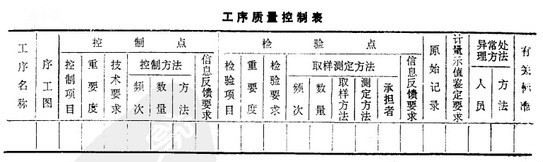 工序质量控制表
工序名称
序工图
控制点
控制项目
重要度
技术要求
控制方法
频次
数量
方法
信息反馈要求
检验点
检验项目
重要度
检验要求
取样测定方法
频次
数量
取样方法
测定方法
承担者
信息反馈要求
原始记录
计量示值鉴定要求
异常处理方法
人员
方法
有关标准